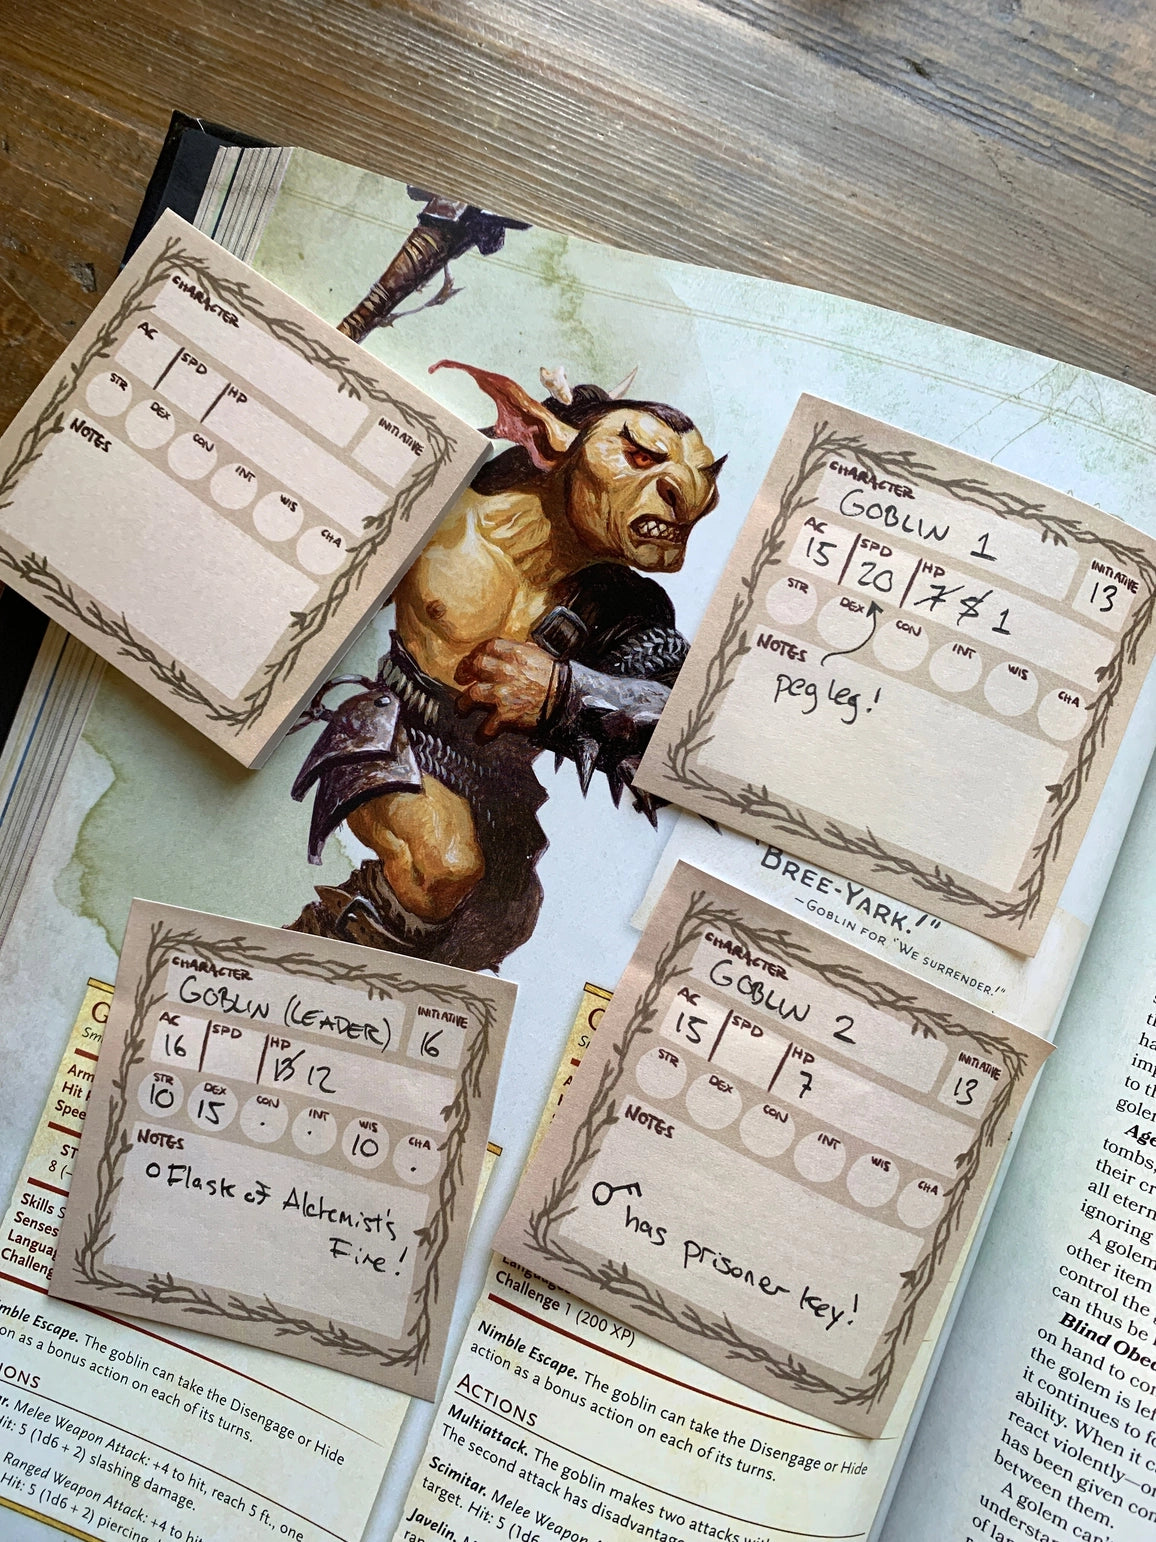 CHARACTER
AC
SPD
HP
INITIATIVE
STR
DEX
CON
INT
WIS
CHA
NOTES
CHARACTER
GOBLIN 1
AC
15
SPD
20
HP
7 1
INITIATIVE
13
STR
DEX
CON
INT
WIS
CHA
NOTES
peg leg!
"BREE-YARK!"
—GOBLIN FOR "WE SURRENDER."
CHARACTER
GOBLIN (LEADER)
AC
16
SPD
HP
13 12
INITIATIVE
16
STR
10
DEX
15
CON
.
INT
.
WIS
10
CHA
.
NOTES
o Flask of Alchemist's
Fire!
CHARACTER
GOBLIN 2
AC
15
SPD
HP
7
INITIATIVE
13
STR
DEX
CON
INT
WIS
CHA
NOTES
has prisoner key!
Arm
Hit
Spee
ST
8 (–
Skills S
Senses
Langua
Challeng
mble Escape. The goblin can take the Disengage or Hide
on as a bonus action on each of its turns.
IONS
r. Melee Weapon Attack: +4 to hit, reach 5 ft., one
Hit: 5 (1d6 + 2) slashing damage.
Ranged Weapon Attack: +4 to hi
Hit: 5 (1d6 + 2) piercing
Challenge 1 (200 XP)
Nimble Escape. The goblin can take the Disengage or Hide
action as a bonus action on each of its turns.
ACTIONS
Multiattack. The goblin makes two attacks with
The second attack has disadvantage
Scimitar. Melee Weapon
target. Hit: 5 (1d6
Javelin.
to the
golem
Age
tombs,
their cr
all etern
ignoring
A golem
other item
control the
can thus be
Blind Obed
on hand to con
the golem is lef
it continues to fo
ability. When it ca
react violently—or
has been given con
between them.
A golem can't
understan
of lan